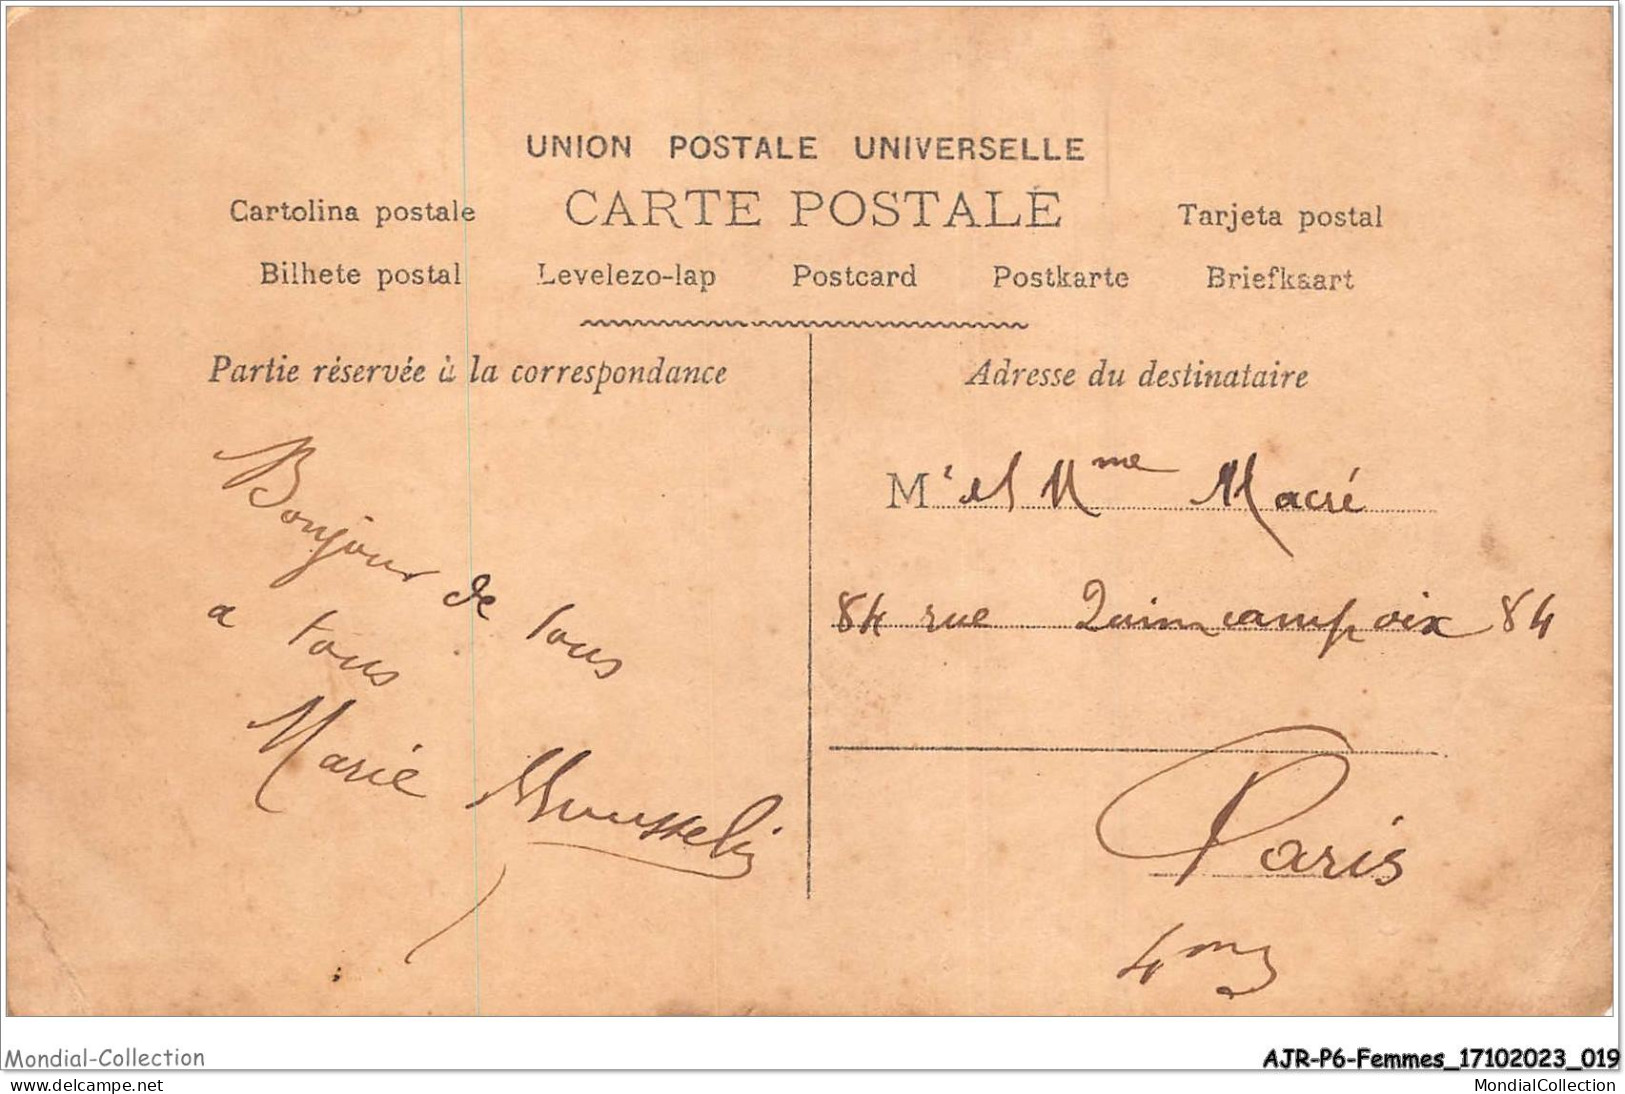 UNION POSTALE UNIVERSELLE
CARTE POSTALE
Cartolina postale
Tarjeta postal
Bilhete postal Levelezo-lap Postcard Postkarte Briefkaart
Partie réservée à la correspondance
Bonjour de tous
a tous
Marie
Adresse du destinataire
Mr et Mme Macré
84 rue Quincampoix 84
Paris
Mondial-Collection
AJR-P6-Femmes_17102023_019
www.delcampe.net
MondialCollection